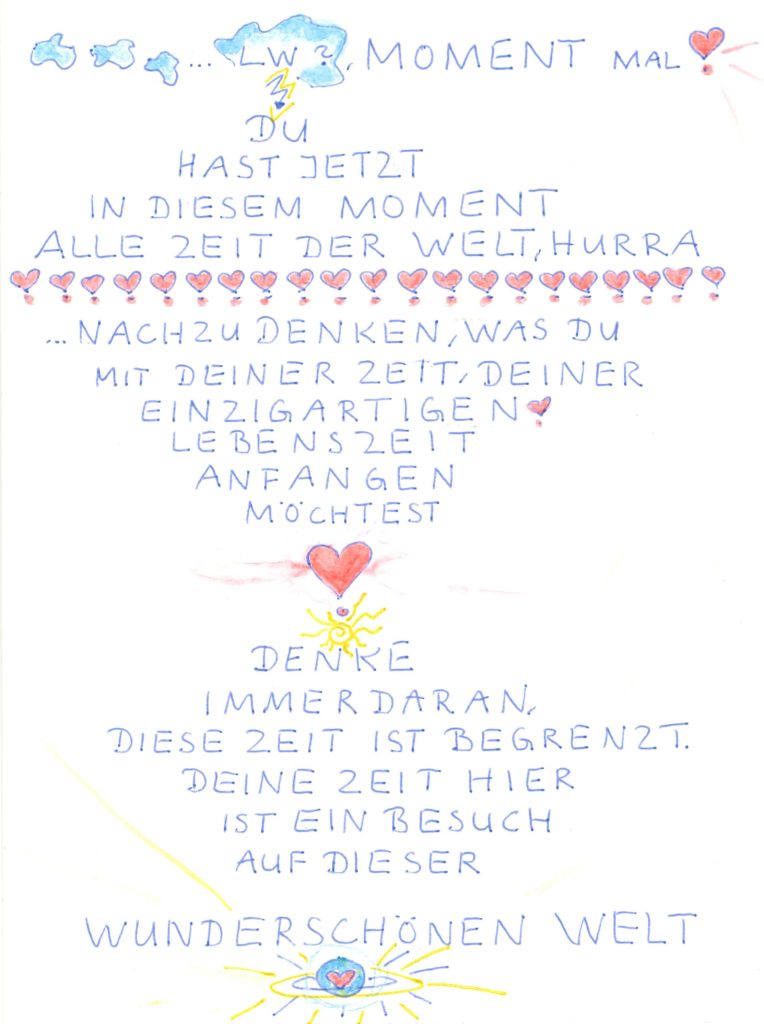 ... LW?, MOMENT MAL
DU
HAST JETZT
IN DIESEM MOMENT
ALLE ZEIT DER WELT, HURRA
...NACHZUDENKEN, WAS DU
MIT DEINER ZEIT, DEINER
EINZIGARTIGEN
LEBENSZEIT
ANFANGEN
MÖCHTEST
DENKE
IMMER DARAN,
DIESE ZEIT IST BEGRENZT.
DEINE ZEIT HIER
IST EIN BESUCH
AUF DIESER
WUNDERSCHÖNEN WELT